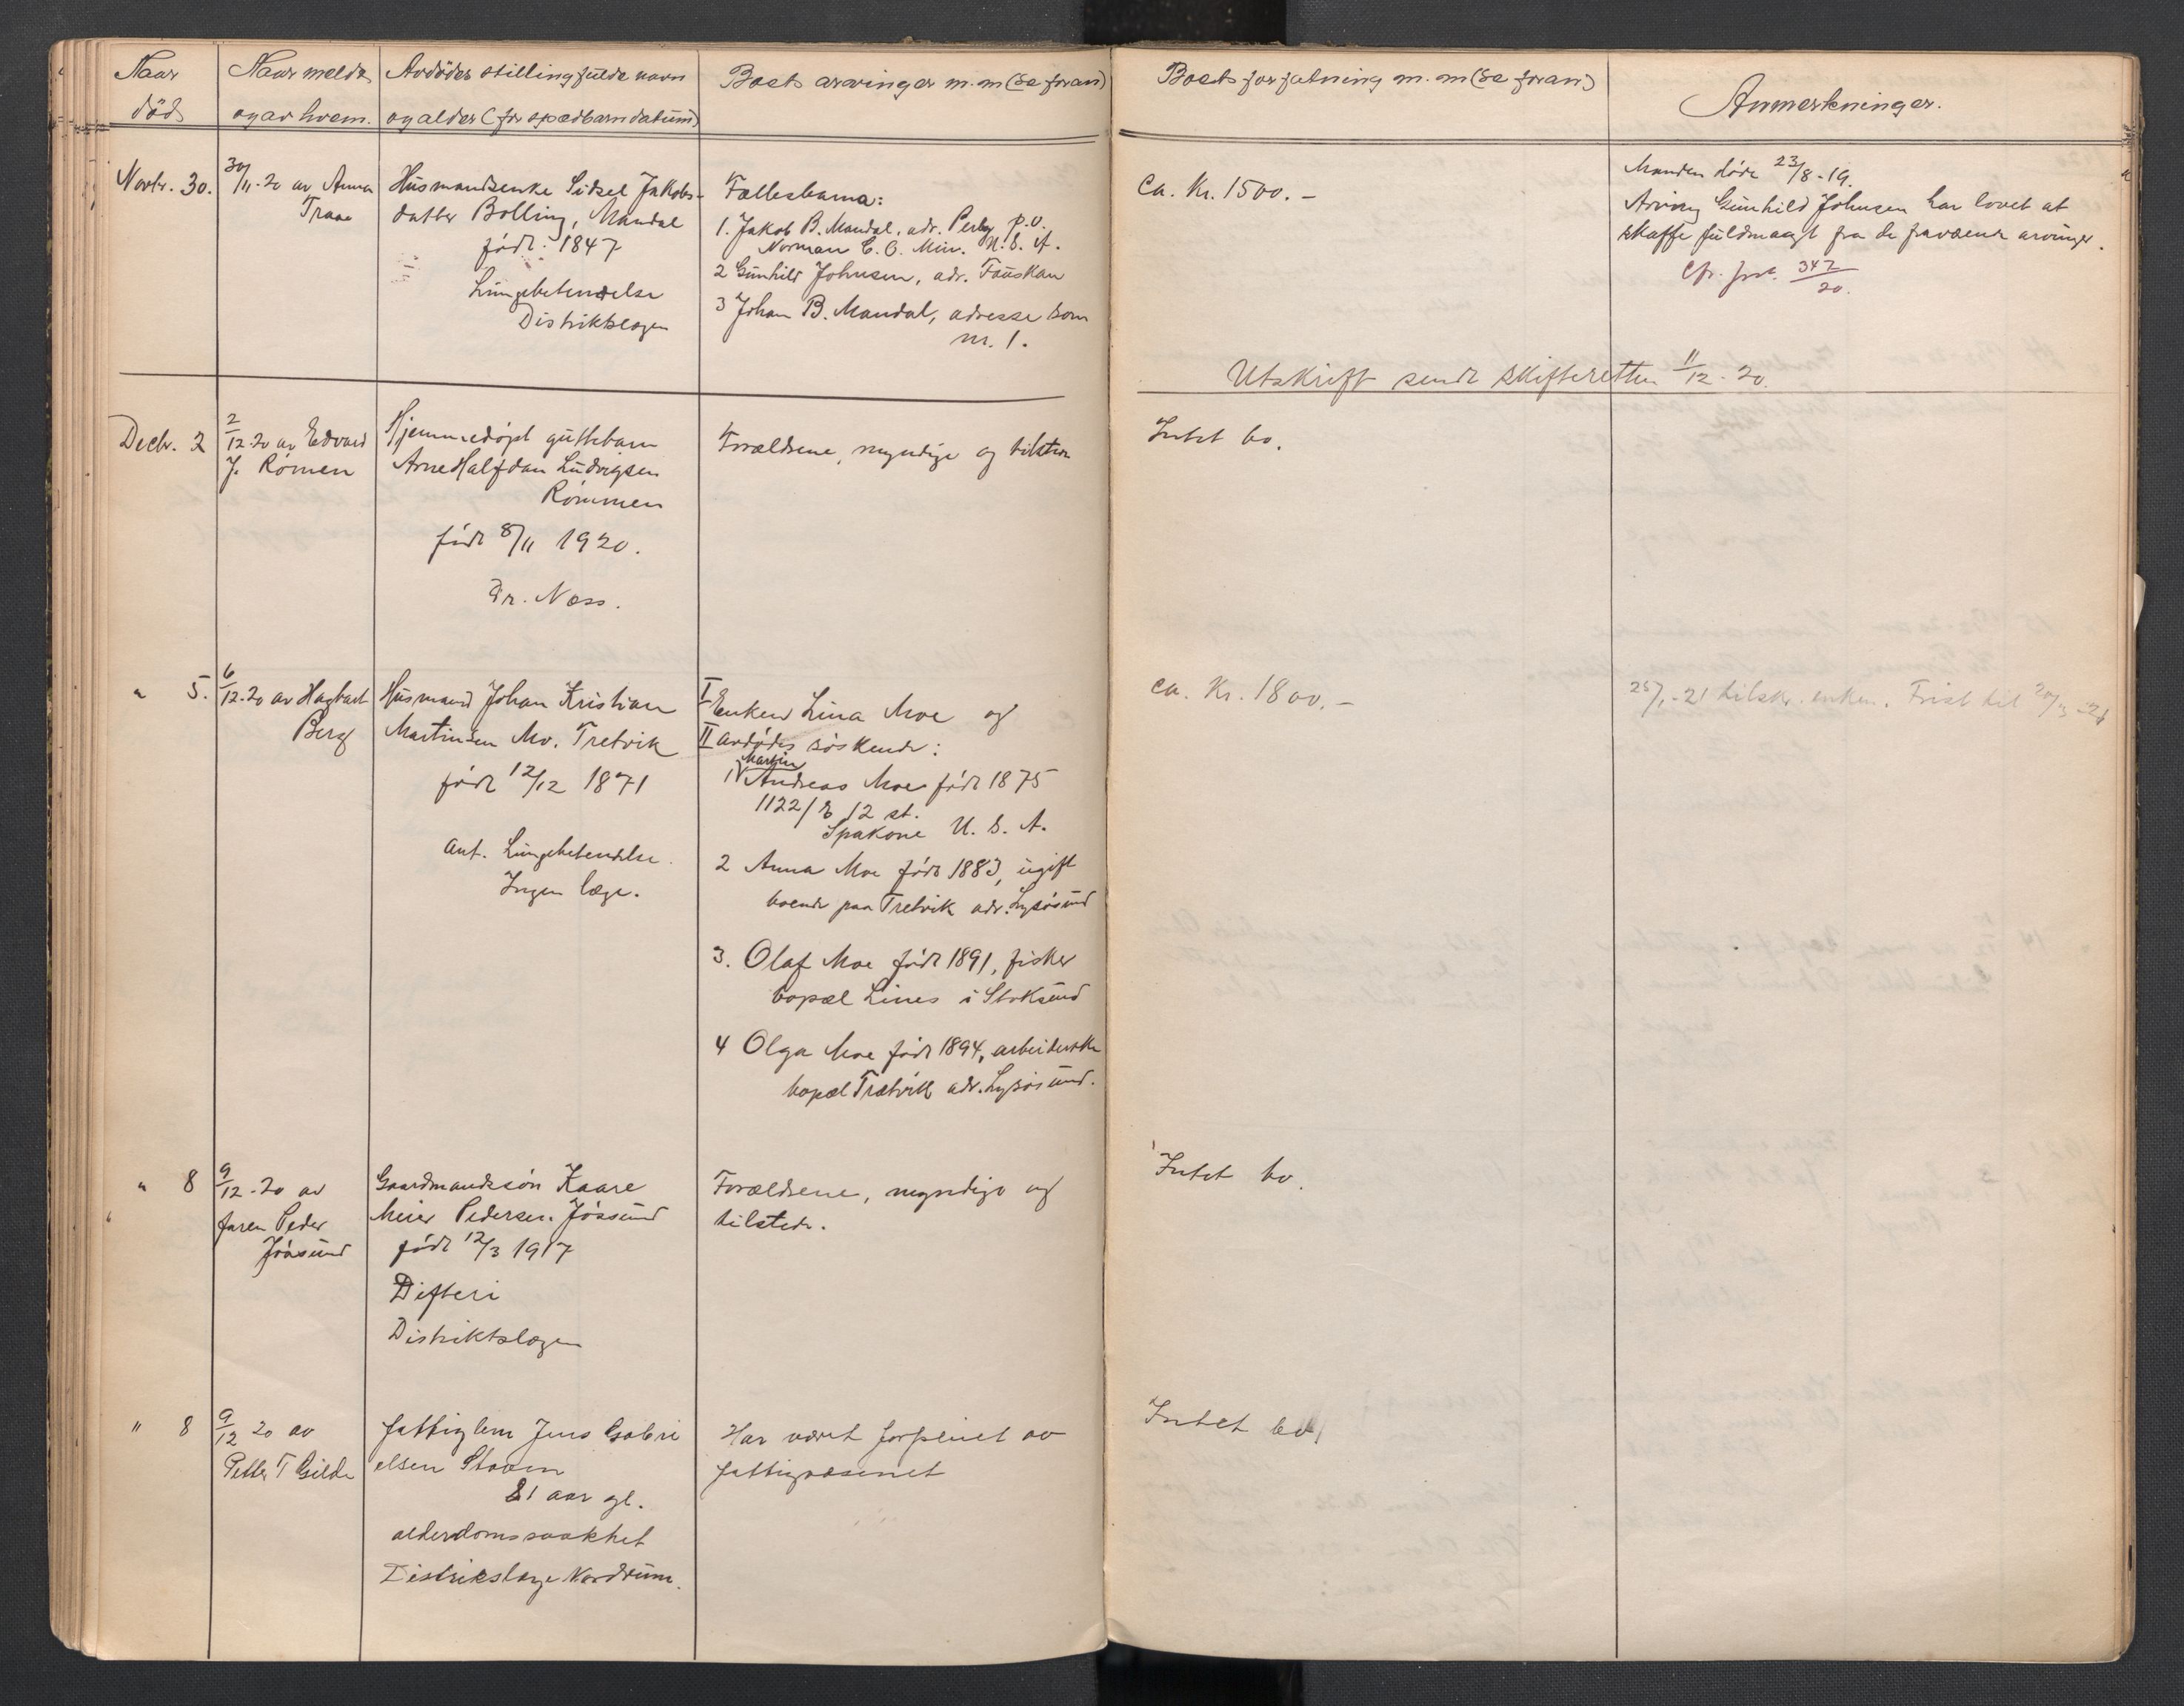 Naar
död
Naar meldt
og av hvem.
Avdödes stilling fulde navn
og alder (for spædbarn datum)
Boets arvinger m. m (se foran)
Boets forfatning m. m (se foran)
Anmerkninger.
Novbr. 30.
30/11-20 av Anna
Husmandsenke Sidsel Jakobs-
datter Bolling, Mandal
født: 1847
Lungebetendelse
Distriktslægen
Fællesbarna:
1. Jakob B. Mandal, adr. Perley P.O.
Norman C. O. Min. U. S. A.
2 Gunhild Johnsen, adr. Fauskan
3 Johan B. Mandal, adresse som
nr. 1.
Ca. Kr. 1500.-
Manden døde 23/8-19.
Arving Gunhild Johnsen har lovet at
skaffe fuldmagt fra de fraværende arvinger.
Cfr. jrnl. 347/20.
Utskrift sendt skifteretten 11/12-20.
Decbr. 2
2/12-20 av Edvard
J. Rømen
Hjemmedøpt guttebarn
Arne Halfdan Ludvigsen
Rømmen
født 8/11 1920.
Dr. Næss.
Forældrene, myndige og tilstede
Intet bo.
" 5.
6/12-20 av Hagbart
Berg
Husmand Johan Kristian
Martinsen Mo. Tretvik
født 12/12 1871
Ant. Lungebetendelse.
Ingen læge.
I Enken Lina Moe og
II avdødes søskende:
Martin
1 Andreas Moe født 1875
1122/E 12 st.
Spakone U. S. A.
2 Anna Moe født 1883, ugift
boende paa Tretvik adr. Lysøsund
3. Olaf Moe født 1891, fisker
bopæl Lines i Stoksund
4 Olga Moe født 1894, arbeiderske
bopæl Trætvik adr. Lysøsund.
ca. Kr. 1800.-
25/1-21 tilskr. enken. Frist til 20/3-21
" 8
9/12-20 av
faren Peder
Jøssund
Gaardmandssøn Kaare
Meier Pedersen Jøssund
født 12/3 1917
Difteri
Distriktslægen
Forældrene, myndige og
tilstede.
Intet bo.
" 8
9/12 20 av
Petter T Gilde
fattiglem Jens Gabri
elsen Stoven
81 aar gl.
alderdomssvakhet
Distrikslæge Nordrum.
Har været forpleiet av
fattigvæsenet
Intet bo